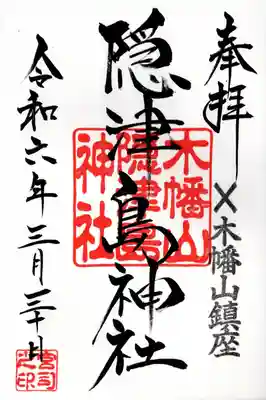 奉拝
×木幡山鎮座
隠津島神社
木幡山
隠津島
神社
令和六年三月三十日
宮司之印